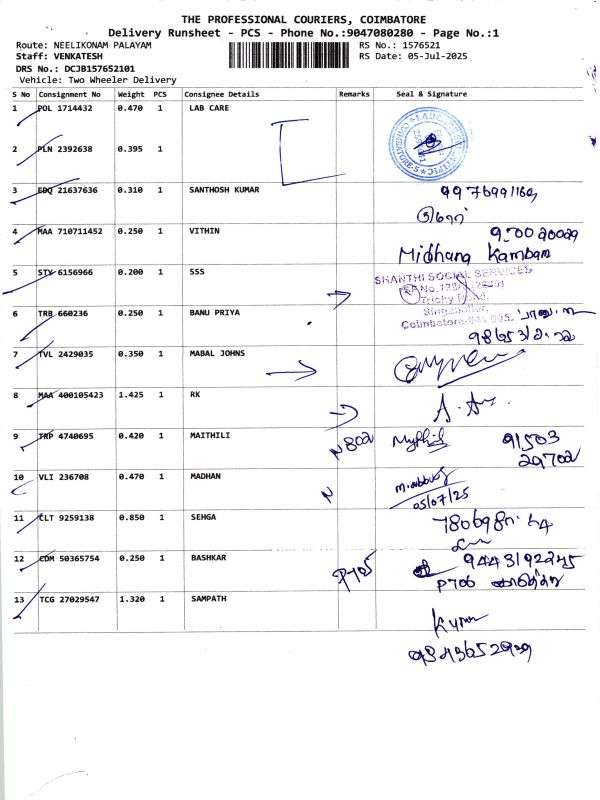 THE PROFESSIONAL COURIERS, COIMBATORE
Delivery Runsheet - PCS - Phone No.:9047080280 - Page No.:1
Route: NEELIKONAM PALAYAM
RS No.: 1576521
Staff: VENKATESH
RS Date: 05-Jul-2025
DRS No.: DCJB157652101
Vehicle: Two Wheeler Delivery
S No Consignment No Weight PCS Consignee Details Remarks Seal & Signature
1 POL 1714432 0.470 1 LAB CARE
2 PLN 2392638 0.395 1
3 EDQ 21637636 0.310 1 SANTHOSH KUMAR
4 MAA 710711452 0.250 1 VITHIN
Midhana Kamban
5 STY 6156966 0.200 1 SSS
SHANTHI SOCIAL SERVICES
Trichy Road,
Singanallur,
6 TRB 660236 0.250 1 BANU PRIYA
7 TVL 2429035 0.350 1 MABAL JOHNS
8 MAA 400105423 1.425 1 RK
9 TRP 4740695 0.420 1 MAITHILI N802 91503
29702
10 VLI 236708 0.470 1 MADHAN N
05/07/25
11 CLT 9259138 0.850 1 SEHGA
12 CDM 50365754 0.250 1 BASHKAR
P706
13 TCG 27029547 1.320 1 SAMPATH